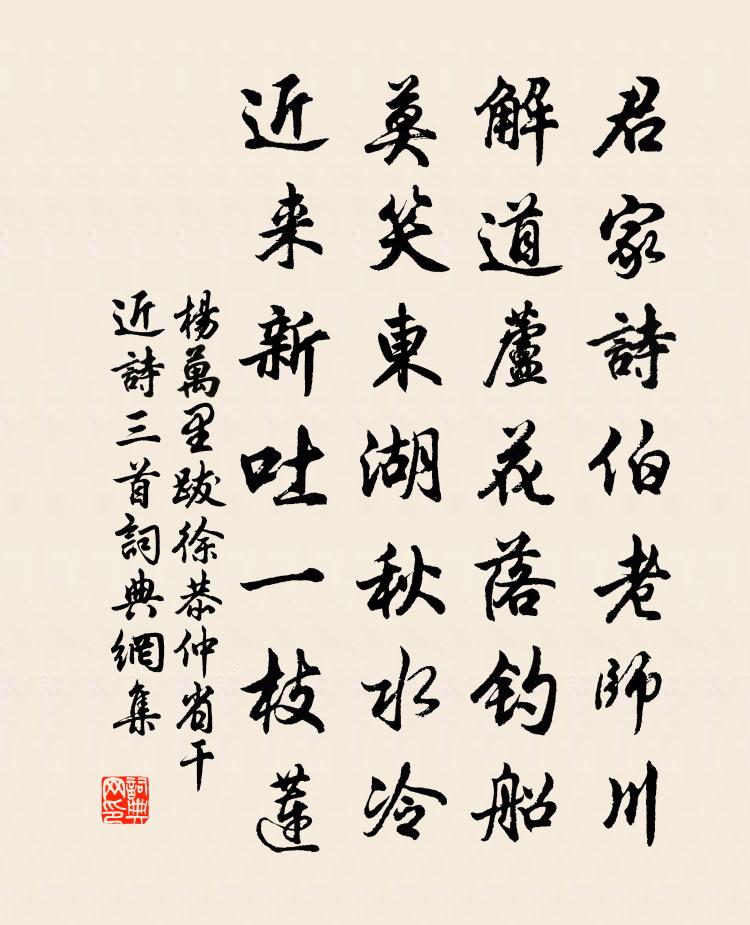 君家詩伯老師川
解道蘆花落釣船
莫笑東湖秋水冷
近来新吐一枝蓮
楊萬里跋徐恭仲省干
近詩三首詞典網集
詞典
网印